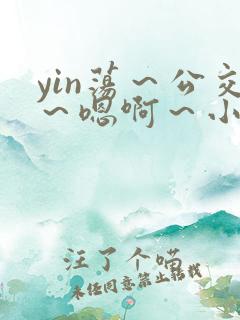 yin荡～公交
～嗯啊～小
汪了个喵
未经同意禁止转载